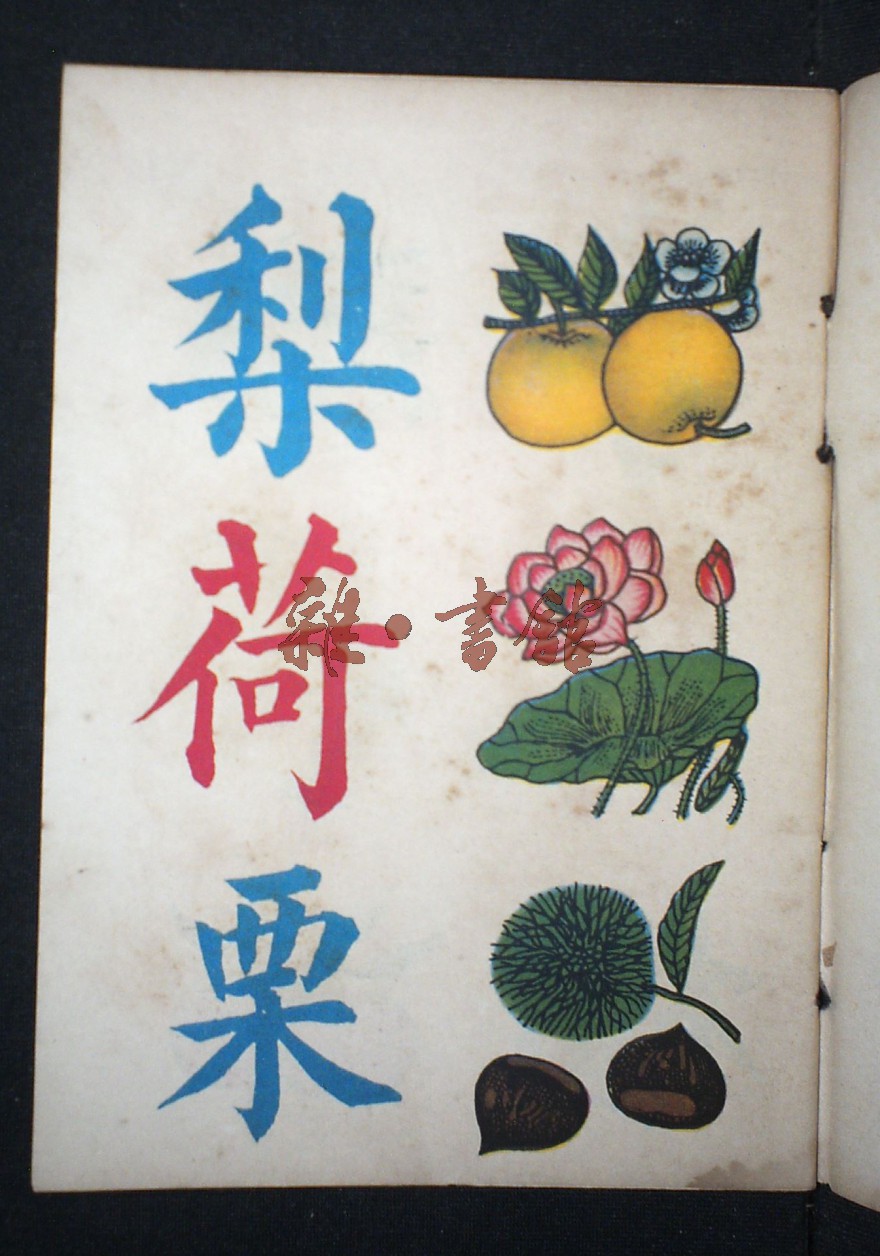 梨
荷
栗
雜·書館